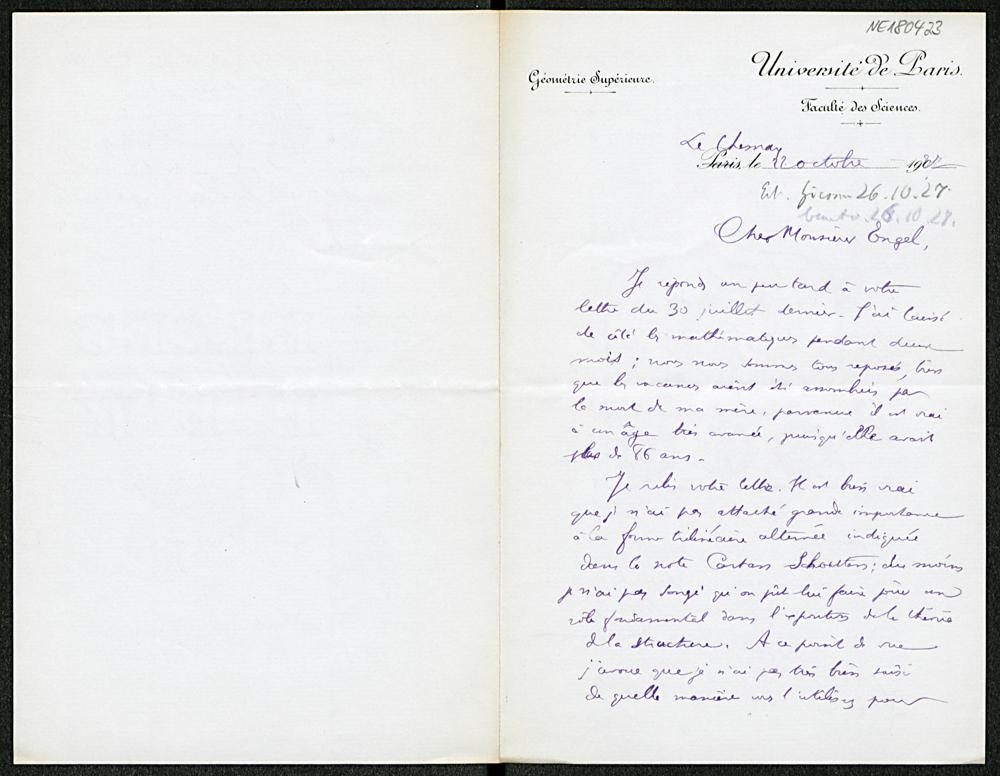 NE180423
Géométrie Supérieure.
Université de Paris.
Faculté des Sciences.
Le Chesnay
Paris, le 22 octobre 1927
26.10.27
26.10.27.
Cher Monsieur Engel,
Je réponds un peu tard à votre
lettre du 30 juillet dernier. J'ai laissé
de côté les mathématiques pendant deux
mois ; nous nous sommes tous reposés, bien
que les vacances aient été assombries par
la mort de ma mère, parvenue il est vrai
à un âge très avancé, puisqu'elle avait
plus de 86 ans.
Je relis votre lettre. Il est bien vrai
que je n'ai pas attaché grande importance
à la forme trilinéaire alternée indiquée
dans la note Cartan Schouten ; du moins
je n'ai pas songé qu'on pût lui faire jouer un
rôle fondamental dans l'exposition de la théorie
de la structure. A ce point de vue
j'avoue que je n'ai pas très bien saisi
de quelle manière vous l'utilisez pour